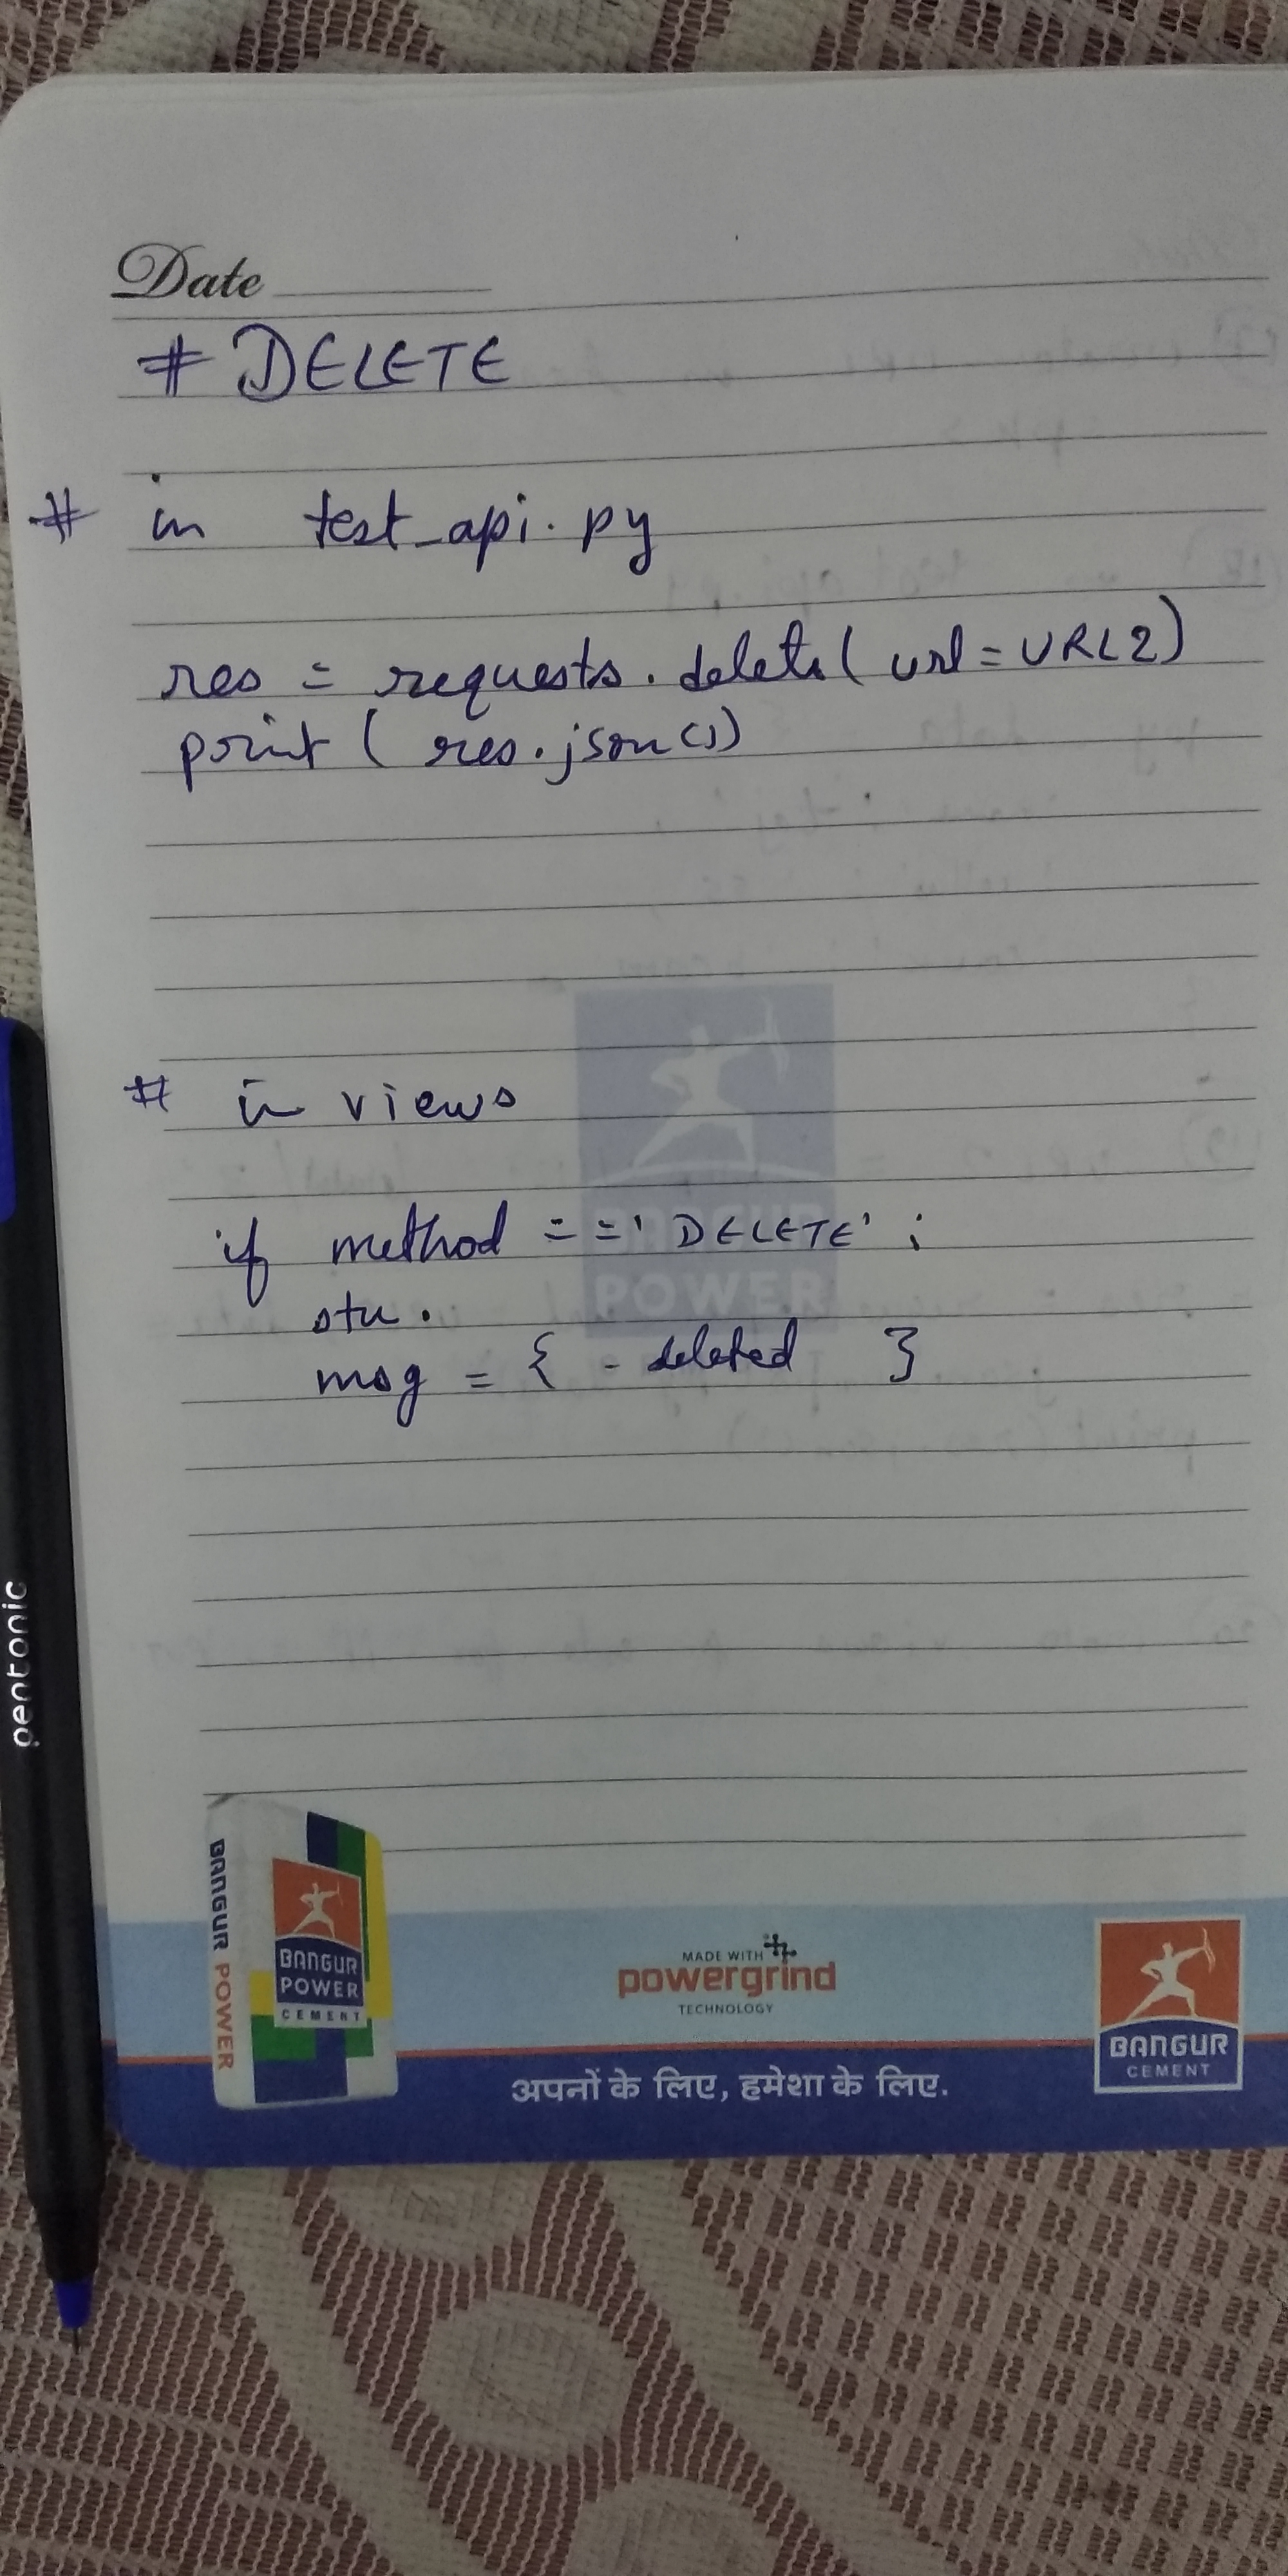 Date
# DELETE
# in test_api.py
res = requests.delete( url = URL2)
print ( res.json())
# in views
if method == 'DELETE' :
stu.
msg = { - deleted }
BANGUR
POWER
pentonic
BANGUR POWER
BANGUR
POWER
CEMENT
MADE WITH
powergrind
TECHNOLOGY
BANGUR
CEMENT
अपनों के लिए, हमेशा के लिए.